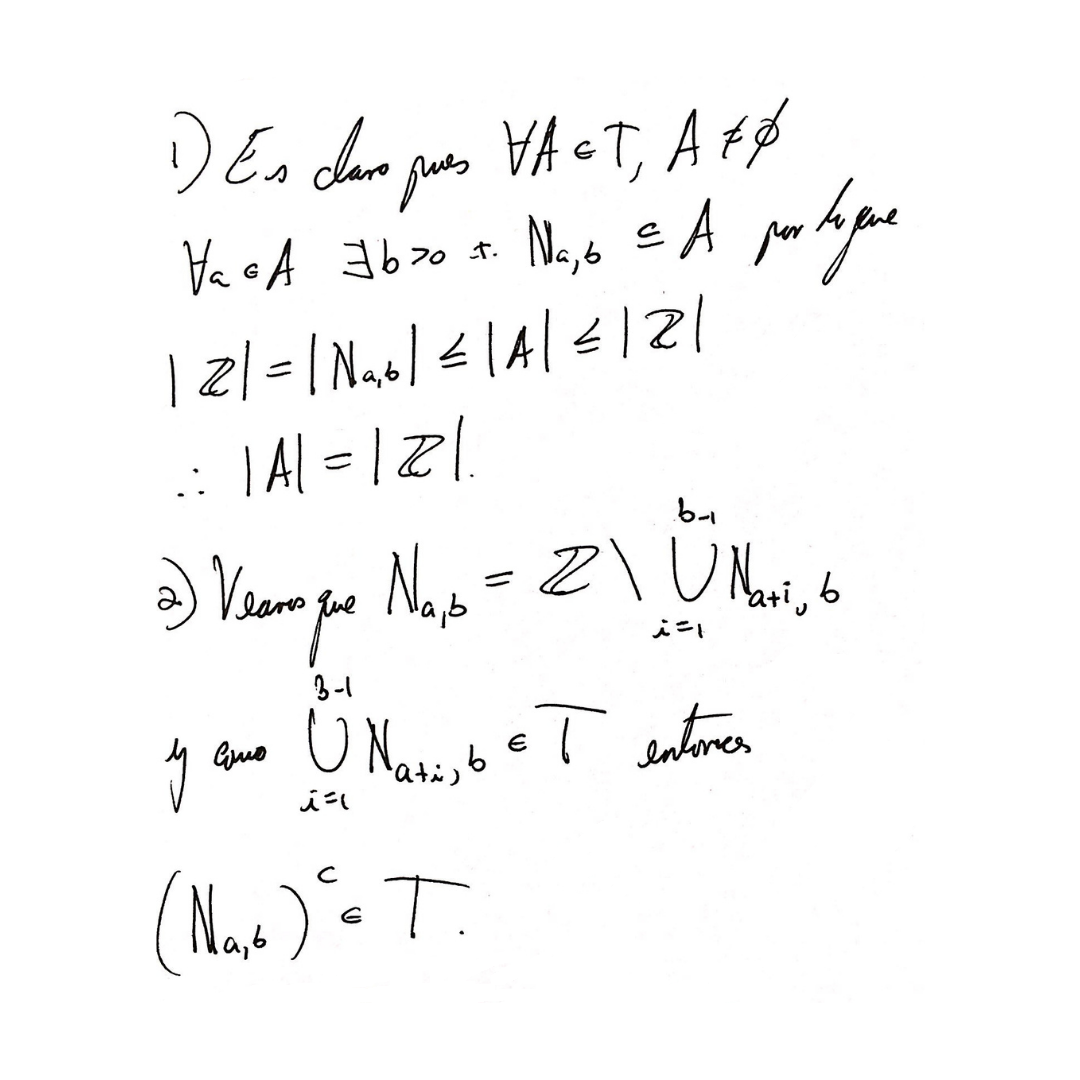 1) Es claro pues ∀A ∈ T, A ≠ ∅
∀a ∈ A ∃b>0 t. N_{a,b} ⊆ A por lo que
|ℤ| = |N_{a,b}| ≤ |A| ≤ |ℤ|
∴ |A| = |ℤ|.
2) Veamos que N_{a,b} = ℤ \ ⋃_{i=1}^{b-1} N_{a+i, b}
y como ⋃_{i=1}^{b-1} N_{a+i, b} ∈ T entonces
(N_{a,b})^c ∈ T.